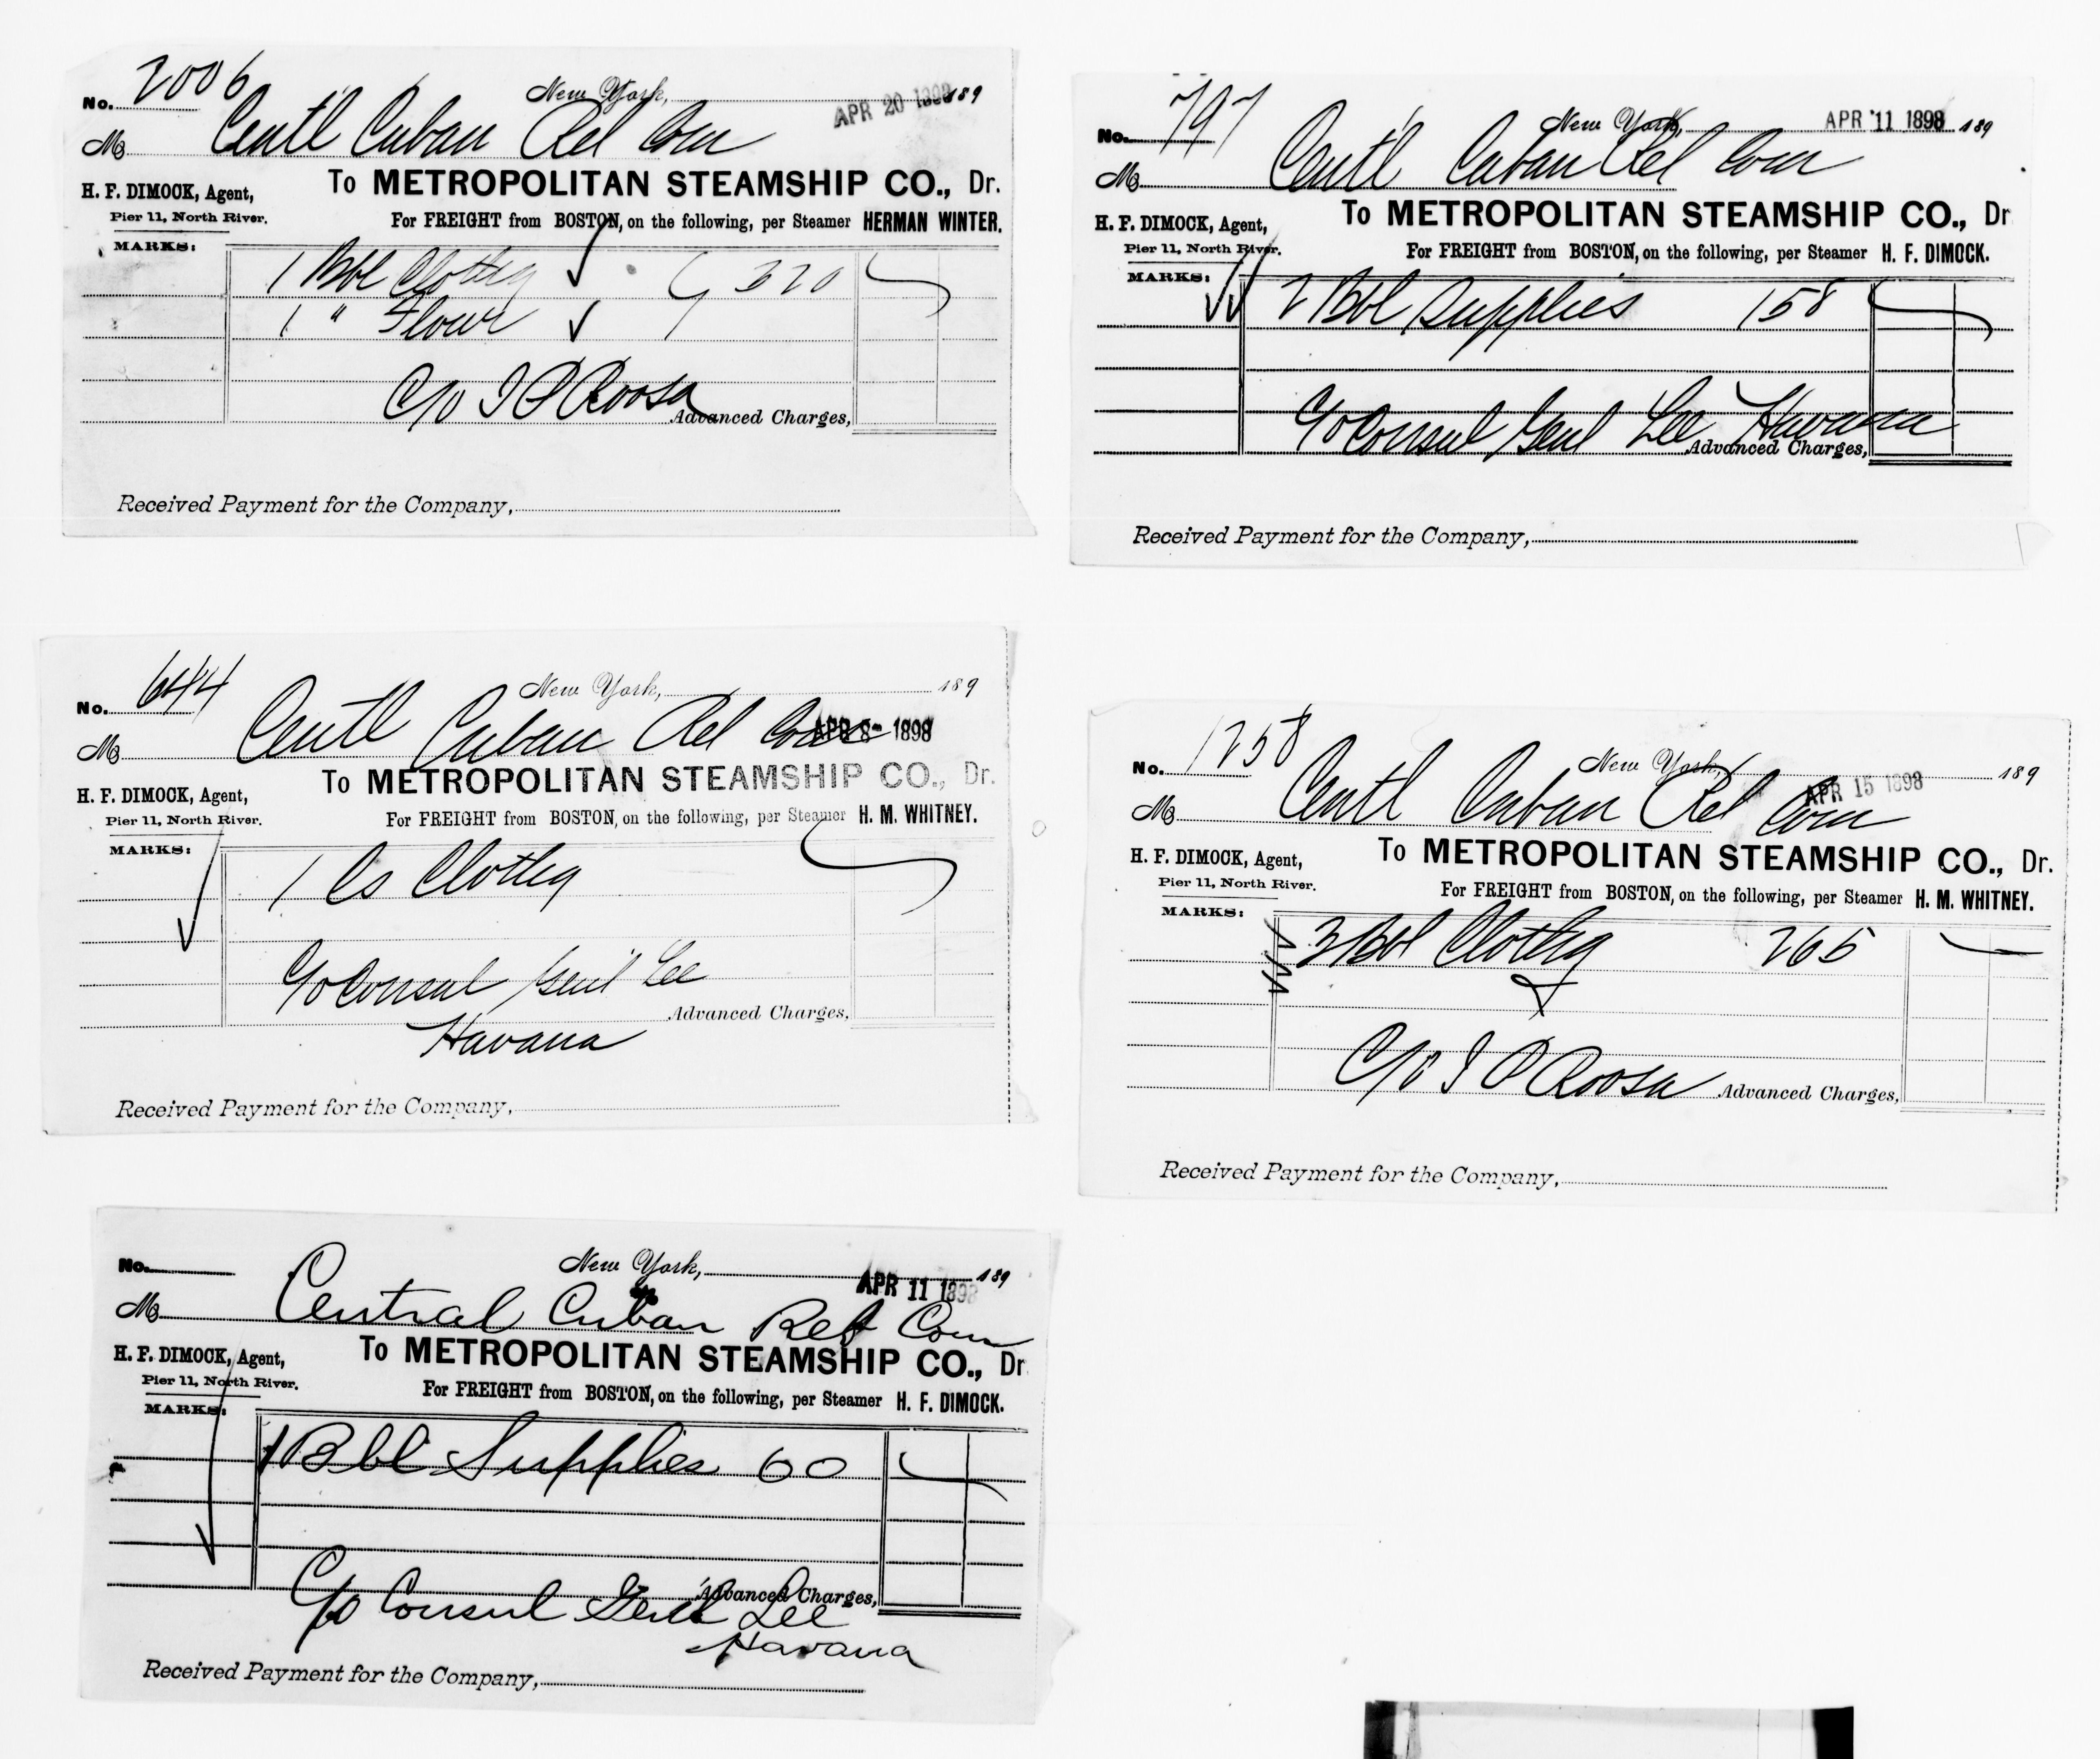 No. 2006
New York, APR 20 1898 189
M Centl Cuban Rel Com
To METROPOLITAN STEAMSHIP CO., Dr.
H. F. DIMOCK, Agent,
Pier 11, North River.
For FREIGHT from BOSTON, on the following, per Steamer HERMAN WINTER.
MARKS:
1 Bbl Clothg 320
1 " Flour
C/o I O Roosa
Advanced Charges,
Received Payment for the Company,
No. 797
New York, APR 11 1898 189
M Centl Cuban Rel Com
To METROPOLITAN STEAMSHIP CO., Dr
H. F. DIMOCK, Agent,
Pier 11, North River.
For FREIGHT from BOSTON, on the following, per Steamer H. F. DIMOCK.
MARKS:
2 Bbl Supplies 158
C/o Consul Genl Lee Havana
Advanced Charges,
Received Payment for the Company,
No. 644
New York, 189
M Centl Cuban Rel Com APR 8- 1898
To METROPOLITAN STEAMSHIP CO., Dr.
H. F. DIMOCK, Agent,
Pier 11, North River.
For FREIGHT from BOSTON, on the following, per Steamer H. M. WHITNEY.
MARKS:
1 Cs Clothg
C/o Consul Genl Lee
Advanced Charges,
Havana
Received Payment for the Company,
No. 1258
New York, 189
M Centl Cuban Rel Com APR 15 1898
To METROPOLITAN STEAMSHIP CO., Dr.
H. F. DIMOCK, Agent,
Pier 11, North River.
For FREIGHT from BOSTON, on the following, per Steamer H. M. WHITNEY.
MARKS:
3 Bbl Clothg 265
C/o I O Roosa
Advanced Charges,
Received Payment for the Company,
No.
New York, APR 11 1898 189
M Central Cuban Ref Com
To METROPOLITAN STEAMSHIP CO., Dr
H. F. DIMOCK, Agent,
Pier 11, North River.
For FREIGHT from BOSTON, on the following, per Steamer H. F. DIMOCK.
MARKS:
1 Bbl Supplies 60
Advanced Charges,
C/o Consul Genl Lee
Havana
Received Payment for the Company,